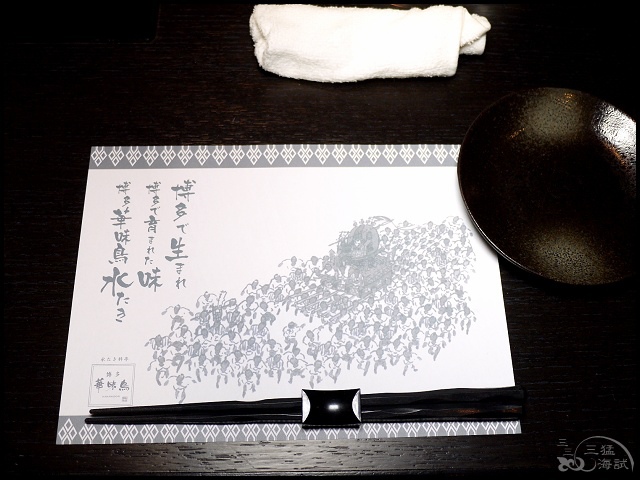 博多で生まれ
博多で育まれた味
博多華味鳥水たき
水たき料亭
博多
華味鳥
三猛
海試